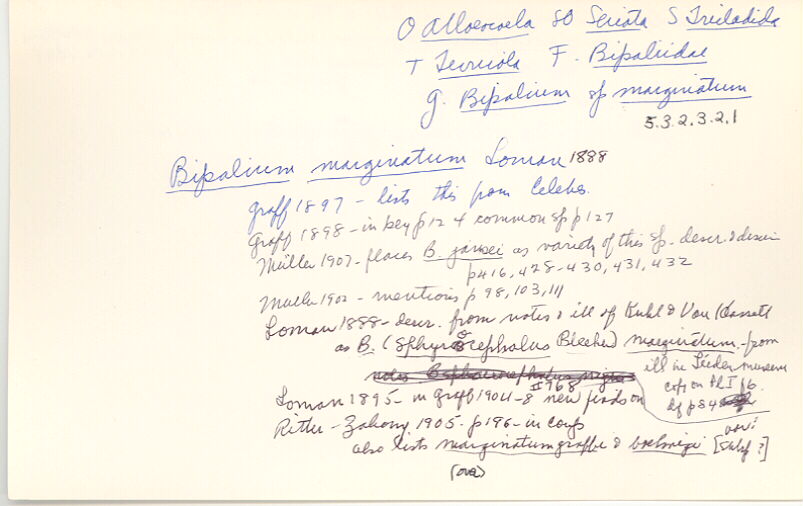 O Alloeocoela SO Seriata S Tricladida
T Terricola F. Bipaliidae
g. Bipalium sp marginatum
5.3.2.3.2.1
Bipalium marginatum Loman 1888
Graff 1897 - lists this from Celebes.
Graff 1898 - in key p 12 & common sp p 127
Müller 1907 - places B. jansei as variety of this sp. descr. & discus
p 416, 428-430, 431, 432
Muller 1902 - mentions p 98, 103, 111
Loman 1888 - descr. from notes & ill of Kuhl & Van Hasselt
as B. (Sphyrocephalus Bleeker) marginatum - from
ill in Leiden museum
copy on Pl I f 6.
II 968
Loman 1895 - in Graff 1904-8 new finds on
Ritter-Zahony 1905 - p 196 - in comp
also lists marginatum graffi & boehmigi [subsp ?]
(over)